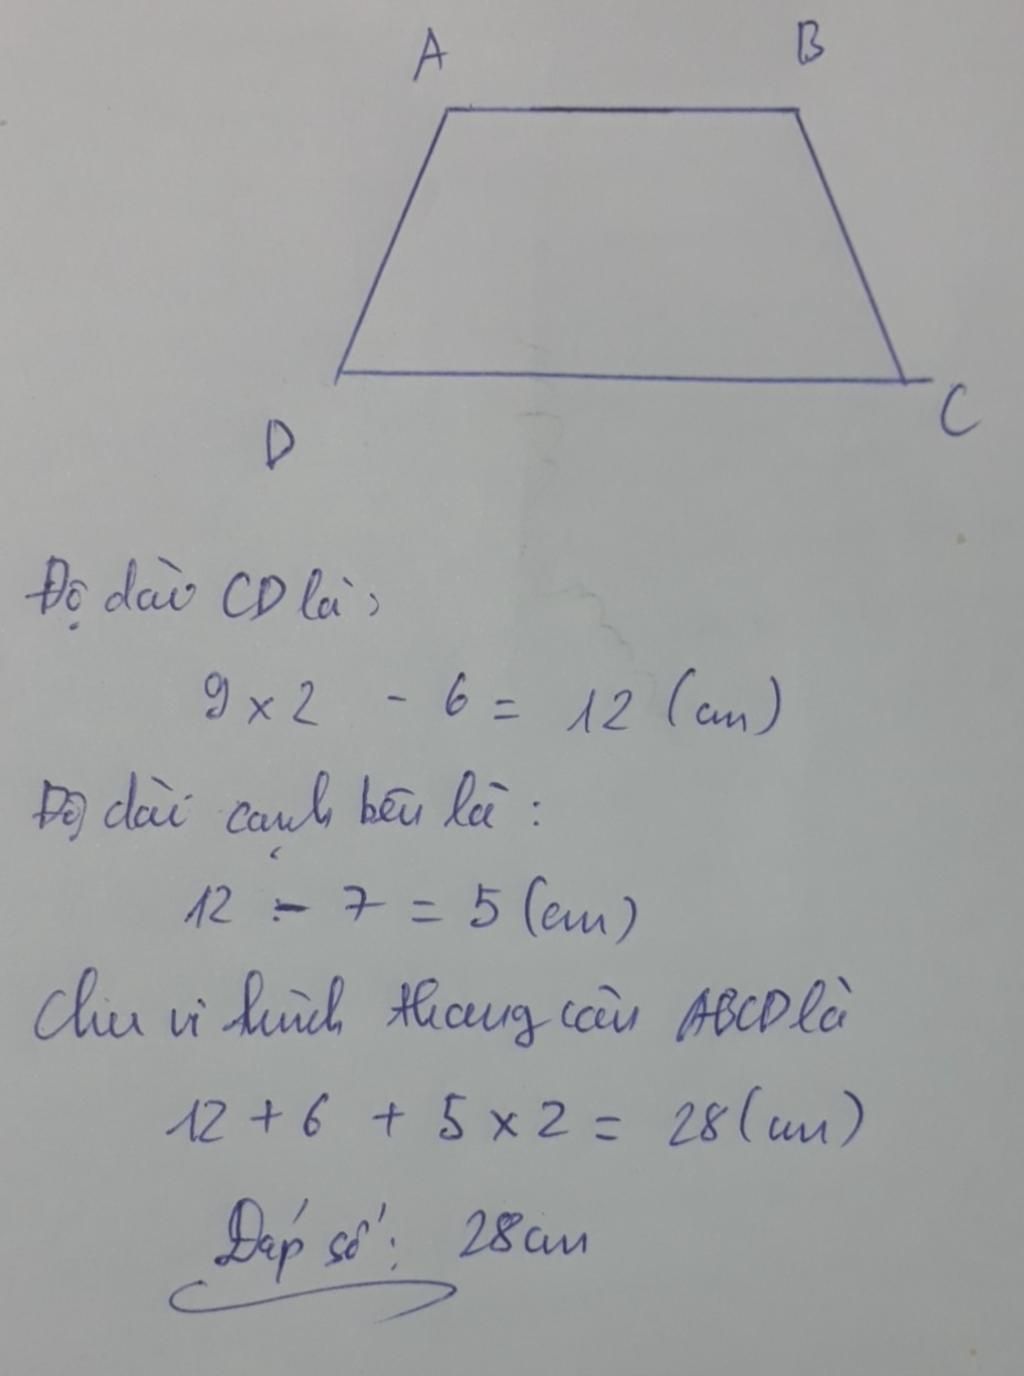 A B
D C
Độ dài CD là:
9 x 2 - 6 = 12 (cm)
Độ dài cạnh bên là:
12 - 7 = 5 (cm)
Chu vi hình thang cân ABCD là
12 + 6 + 5 x 2 = 28 (cm)
Đáp số: 28cm